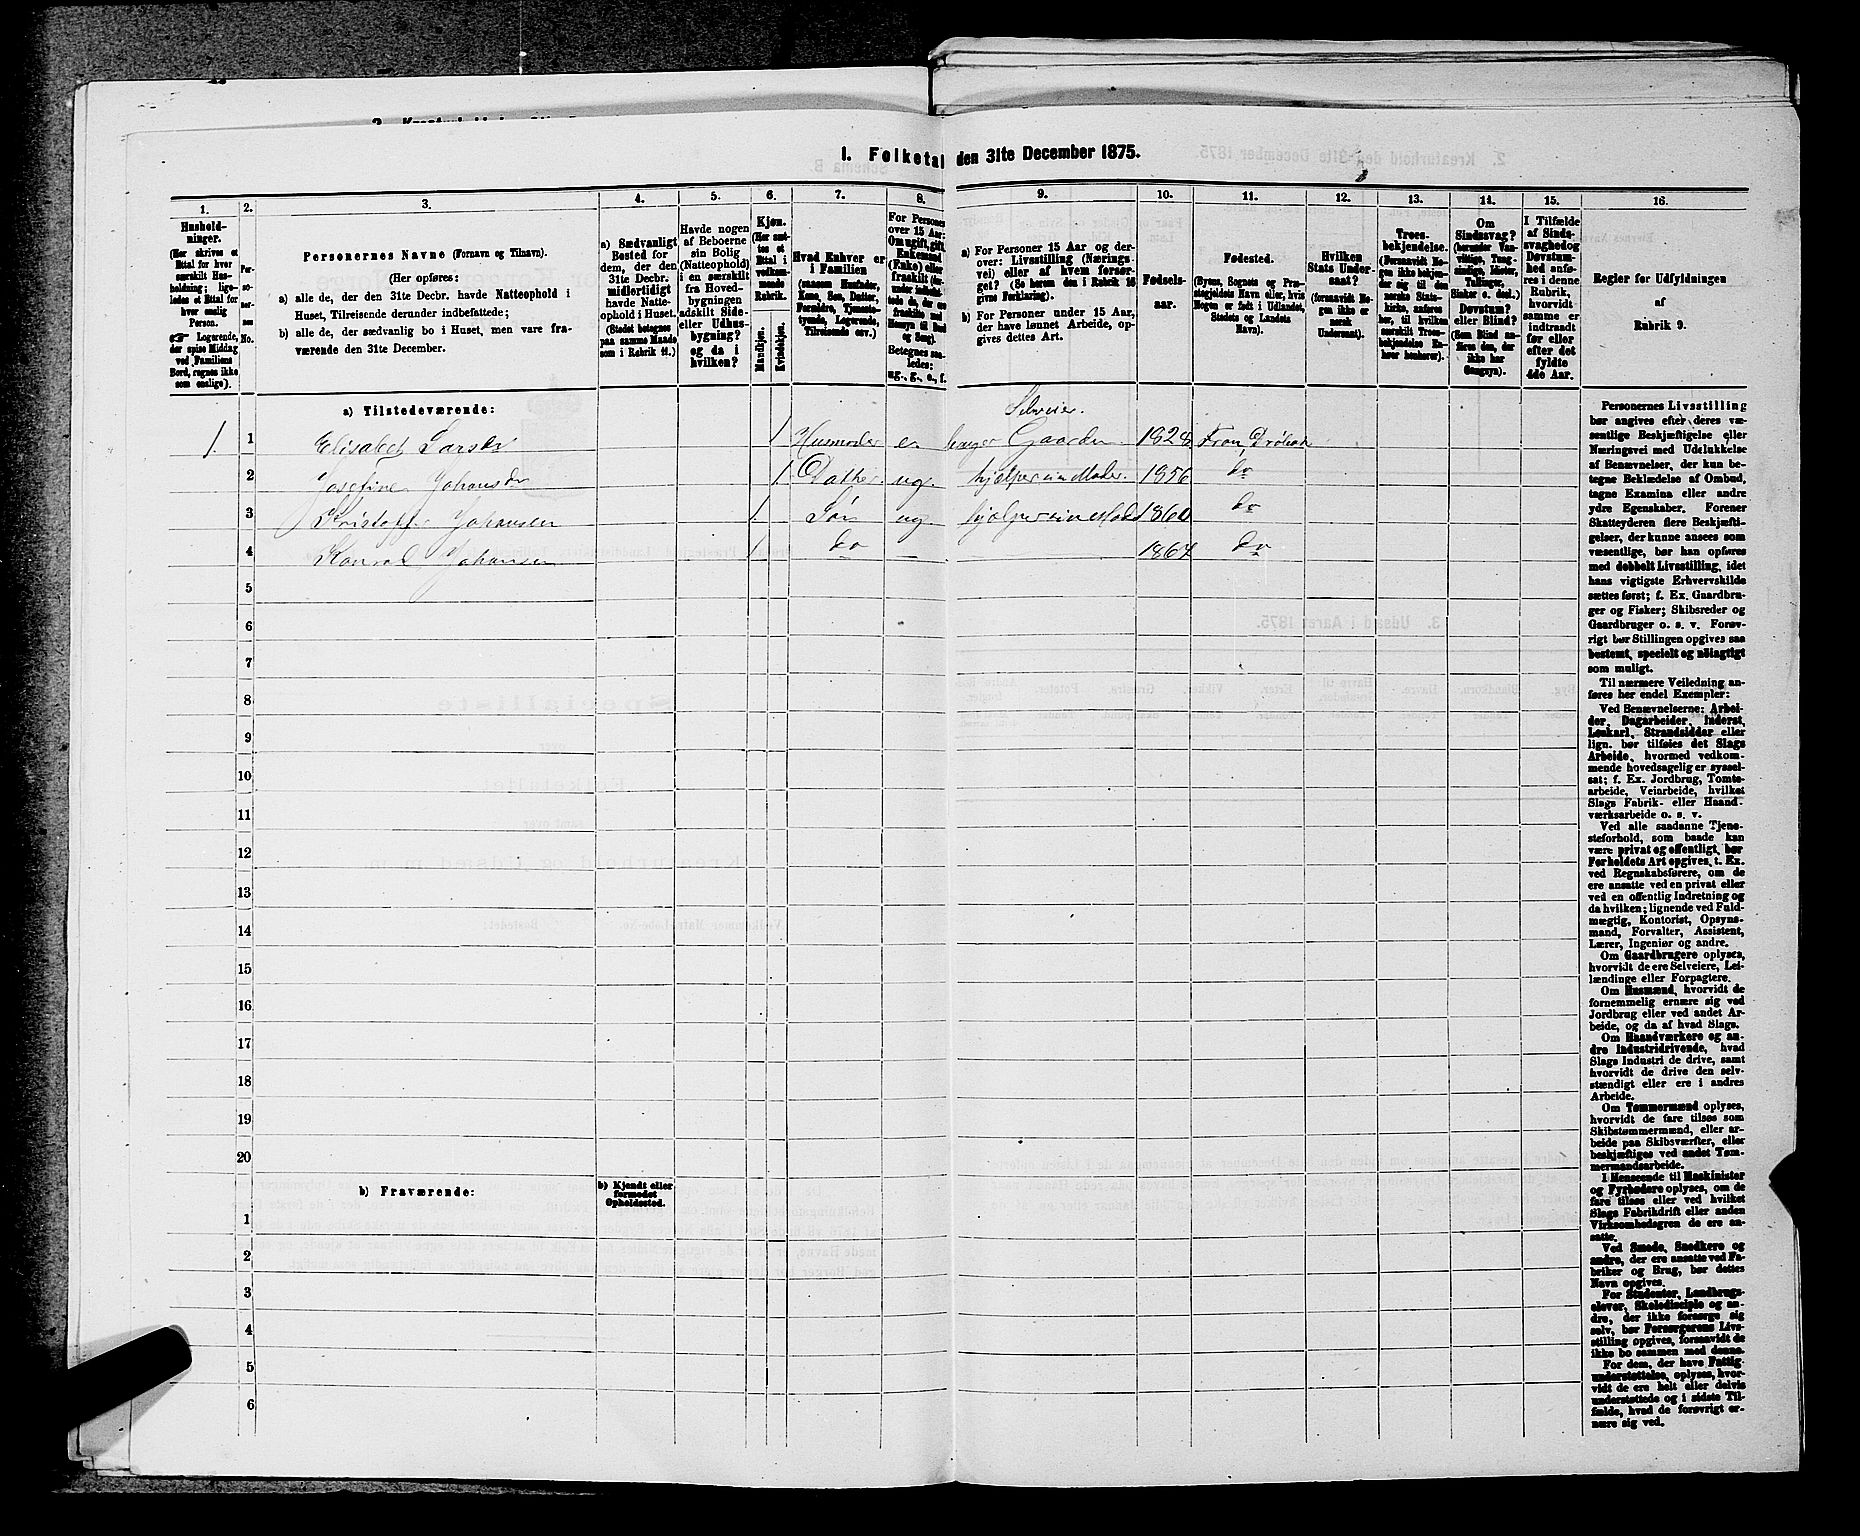 1. Folketal den 31te December 1875.
1.
2.
3.
4.
5.
6.
7.
8.
9.
10.
11.
12.
13.
14.
15.
16.
Hushold-
ninger.
(Her skrives et
Ettal for hver
særskilt Hus-
holdning; lige-
ledes et Ettal for
hver enslig
Person.
☞ Logerende,
der spise Middag
ved Familiens
Bord, regnes ikke
som enslige).
Per-
so-
ner-
nes
No.
Personernes Navne (Fornavn og Tilnavn).
(Her opføres:
a) alle de, der den 31te Decbr. havde Natteophold i
Huset, Tilreisende derunder indbefattede;
b) alle de, der sædvanlig bo i Huset, men vare fra-
værende den 31te December.
a) Sædvanligt
Bosted for
dem, der den
31te Decbr.
midlertidigt
havde Natte-
ophold i Huset.
(Stedet betegnes
paa samme Maade
som i Rubrik 11.)
Havde nogen
af Beboerne
sin Bolig
(Natteophold)
i en særskilt
fra Hoved-
bygningen
adskilt Side-
eller Udhus-
bygning?
og da i
hvilken?
Kjøn.
(Her sæt-
tes et
Ettal i
vedkom-
mende
Rubrik.
Mandkjøn.
Kvindekjøn.
Hvad Enhver er
i Familien
(saasom Husfader,
Kone, Søn, Datter,
Forældre, Tjeneste-
tyende, Logerende,
Tilreisende osv.)
For Personer
over 15 Aar:
Om ugift, gift,
Enkemand
(Enke) eller
fraskilt
Betegnes saa-
ledes:
ug., g., e., f.
a) For Personer 15 Aar og der-
over: Livsstilling (Nærings-
vei) eller af hvem forsør-
get? (Se herom den i Rubrik 16
givne Forklaring).
b) For Personer under 15 Aar,
der have lønnet Arbeide, op-
gives dettes Art.
Fødsels-
aar.
Fødested.
(Byens, Sognets og Præ-
stegjeldets Navn eller, hvis
Nogen er født i Udlandet,
Stedets og Landets
Navn).
Hvilken
Stats Under-
saat?
(forsaavidt No-
gen ikke er
norsk
Undersaat).
Troes-
bekjendelse.
(Forsaavidt No-
gen ikke bekjen-
der sig til den
norske Stats-
kirke, anføres
her, til hvilken
særskilt Troes-
bekjendelse En-
hver henhører).
Om
Sindssvag?
(herunder Van-
vittige, Tung-
sindige, Idioter,
Taabtinger,
Sinker o. desl.)
Døvstum?
eller Blind?
(Som Blind an-
føres den, der
ikke har
Gangsyn).
I Tilfælde
af Sinds-
svaghed og
Døvstum-
hed anfø-
res i denne
Rubrik,
hvorvidt
samme er
indtraadt
før eller
efter det
fyldte
4de Aar.
Regler for Udfyldningen
af
Rubrik 9.
a) Tilstedeværende:
Selveier.
1. 1 Elisabet Larsdr 1 Husmoder e bruger Gaarden. 1828 Fron Drøbak
2 Josefine Johansdr 1 Datter ug hjælper sin Moder. 1856 do
3 Kristoffer Johansen 1 Søn ug hjælper sin Mod 1860 do
4 Konrad Johansen 1 do — 1867 do
5
6
7
8
9
10
11
12
13
14
15
16
17
18
19
20
b) Fraværende:
b) Kjendt eller
formodet
Opholdssted.
1
2
3
4
5
6
Personernes Livsstilling
bør angives efter deres væ-
sentlige Beskjæftigelse eller
Næringsvei med Udelukkelse
af Benævnelser, der kun be-
tegne Beklædelse af Ombud,
tagne Examina eller andre
ydre Egenskaber. Forener
Skatteyderen flere Beskjæfti-
gelser, der kunne ansees som
væsentlige, bør han opføres
med dobbelt Livsstilling, idet
hans vigtigste Erhvervskilde
sættes først; f. Ex. Gaardbru-
ger og Fisker; Skibsreder og
Gaardbruger o. s. v. Forøv-
rigt bør Stillingen opgives saa
bestemt, specielt og nøiagtigt
som muligt.
Til nærmere Veiledning an-
føres her endel Exempler:
Ved Benævnelserne: Arbei-
der, Dagarbeider, Inderst,
Løskarl, Strandsidder eller
lign. bør tilføies det Slags
Arbeide, hvormed vedkom-
mende hovedsagelig er syssel-
sat; f. Ex. Jordbrug, Tomte-
arbeide, Veiarbeide, hvilket
Slags Fabrik- eller Haand-
værksarbeide o. s. v.
Ved alle saadanne Tjene-
steforhold, som baade kan
være privat og offentligt, bør
Forholdets Art opgives, t. Ex.
ved Regnskabsførere, om de
ere ansatte ved en privat eller
ved en offentlig Indretning og
da hvilken; lignende ved Fuld-
mægtig, Kontorist, Opsyns-
mand, Forvalter, Assistent,
Lærer, Ingeniør og andre.
Om Gaardbrugere oplyses,
hvorvidt de ere Selveiere, Lei-
lændinge eller Forpagtere.
Om Husmænd, hvorvidt de
fornemmelig ernære sig ved
Jordbrug eller ved andet Ar-
beide, og da af hvad Slags.
Om Haandværkere og an-
dre Industridrivende, hvad
Slags Industri de drive, samt
hvorvidt de drive den selv-
stændigt eller ere i andres
Arbeide.
Om Tømmermænd oplyses,
hvorvidt de fare tilsøs som
Skibstømmermænd, eller ar-
beide paa Skibsværfter, eller
beskjæftiges ved andet Tøm-
mermandsarbeide.
I Henseende til Maskinister
og Fyrbødere oplyses, om de
fare tilsøs eller ved hvilket
Slags Fabrikdrift eller anden
Virksomhedsgren de ere an-
satte.
Ved Smede, Snedkere og
andre, der ere ansatte ved Fa-
briker og Brug, bør dettes
Navn opgives.
For Studenter, Landbrugs-
elever, Skoledisciple og an-
dre, der ikke forsørge sig
selv, bør Forsørgerens Livs-
stilling opgives, forsaavidt de
ikke bo sammen med denne.
For dem, der have Fattig-
understøttelse, oplyses, hvor-
vidt de ere helt eller delvis
understøttede og i sidste Til-
fælde, hvad de forøvrigt er-
nære sig ved.